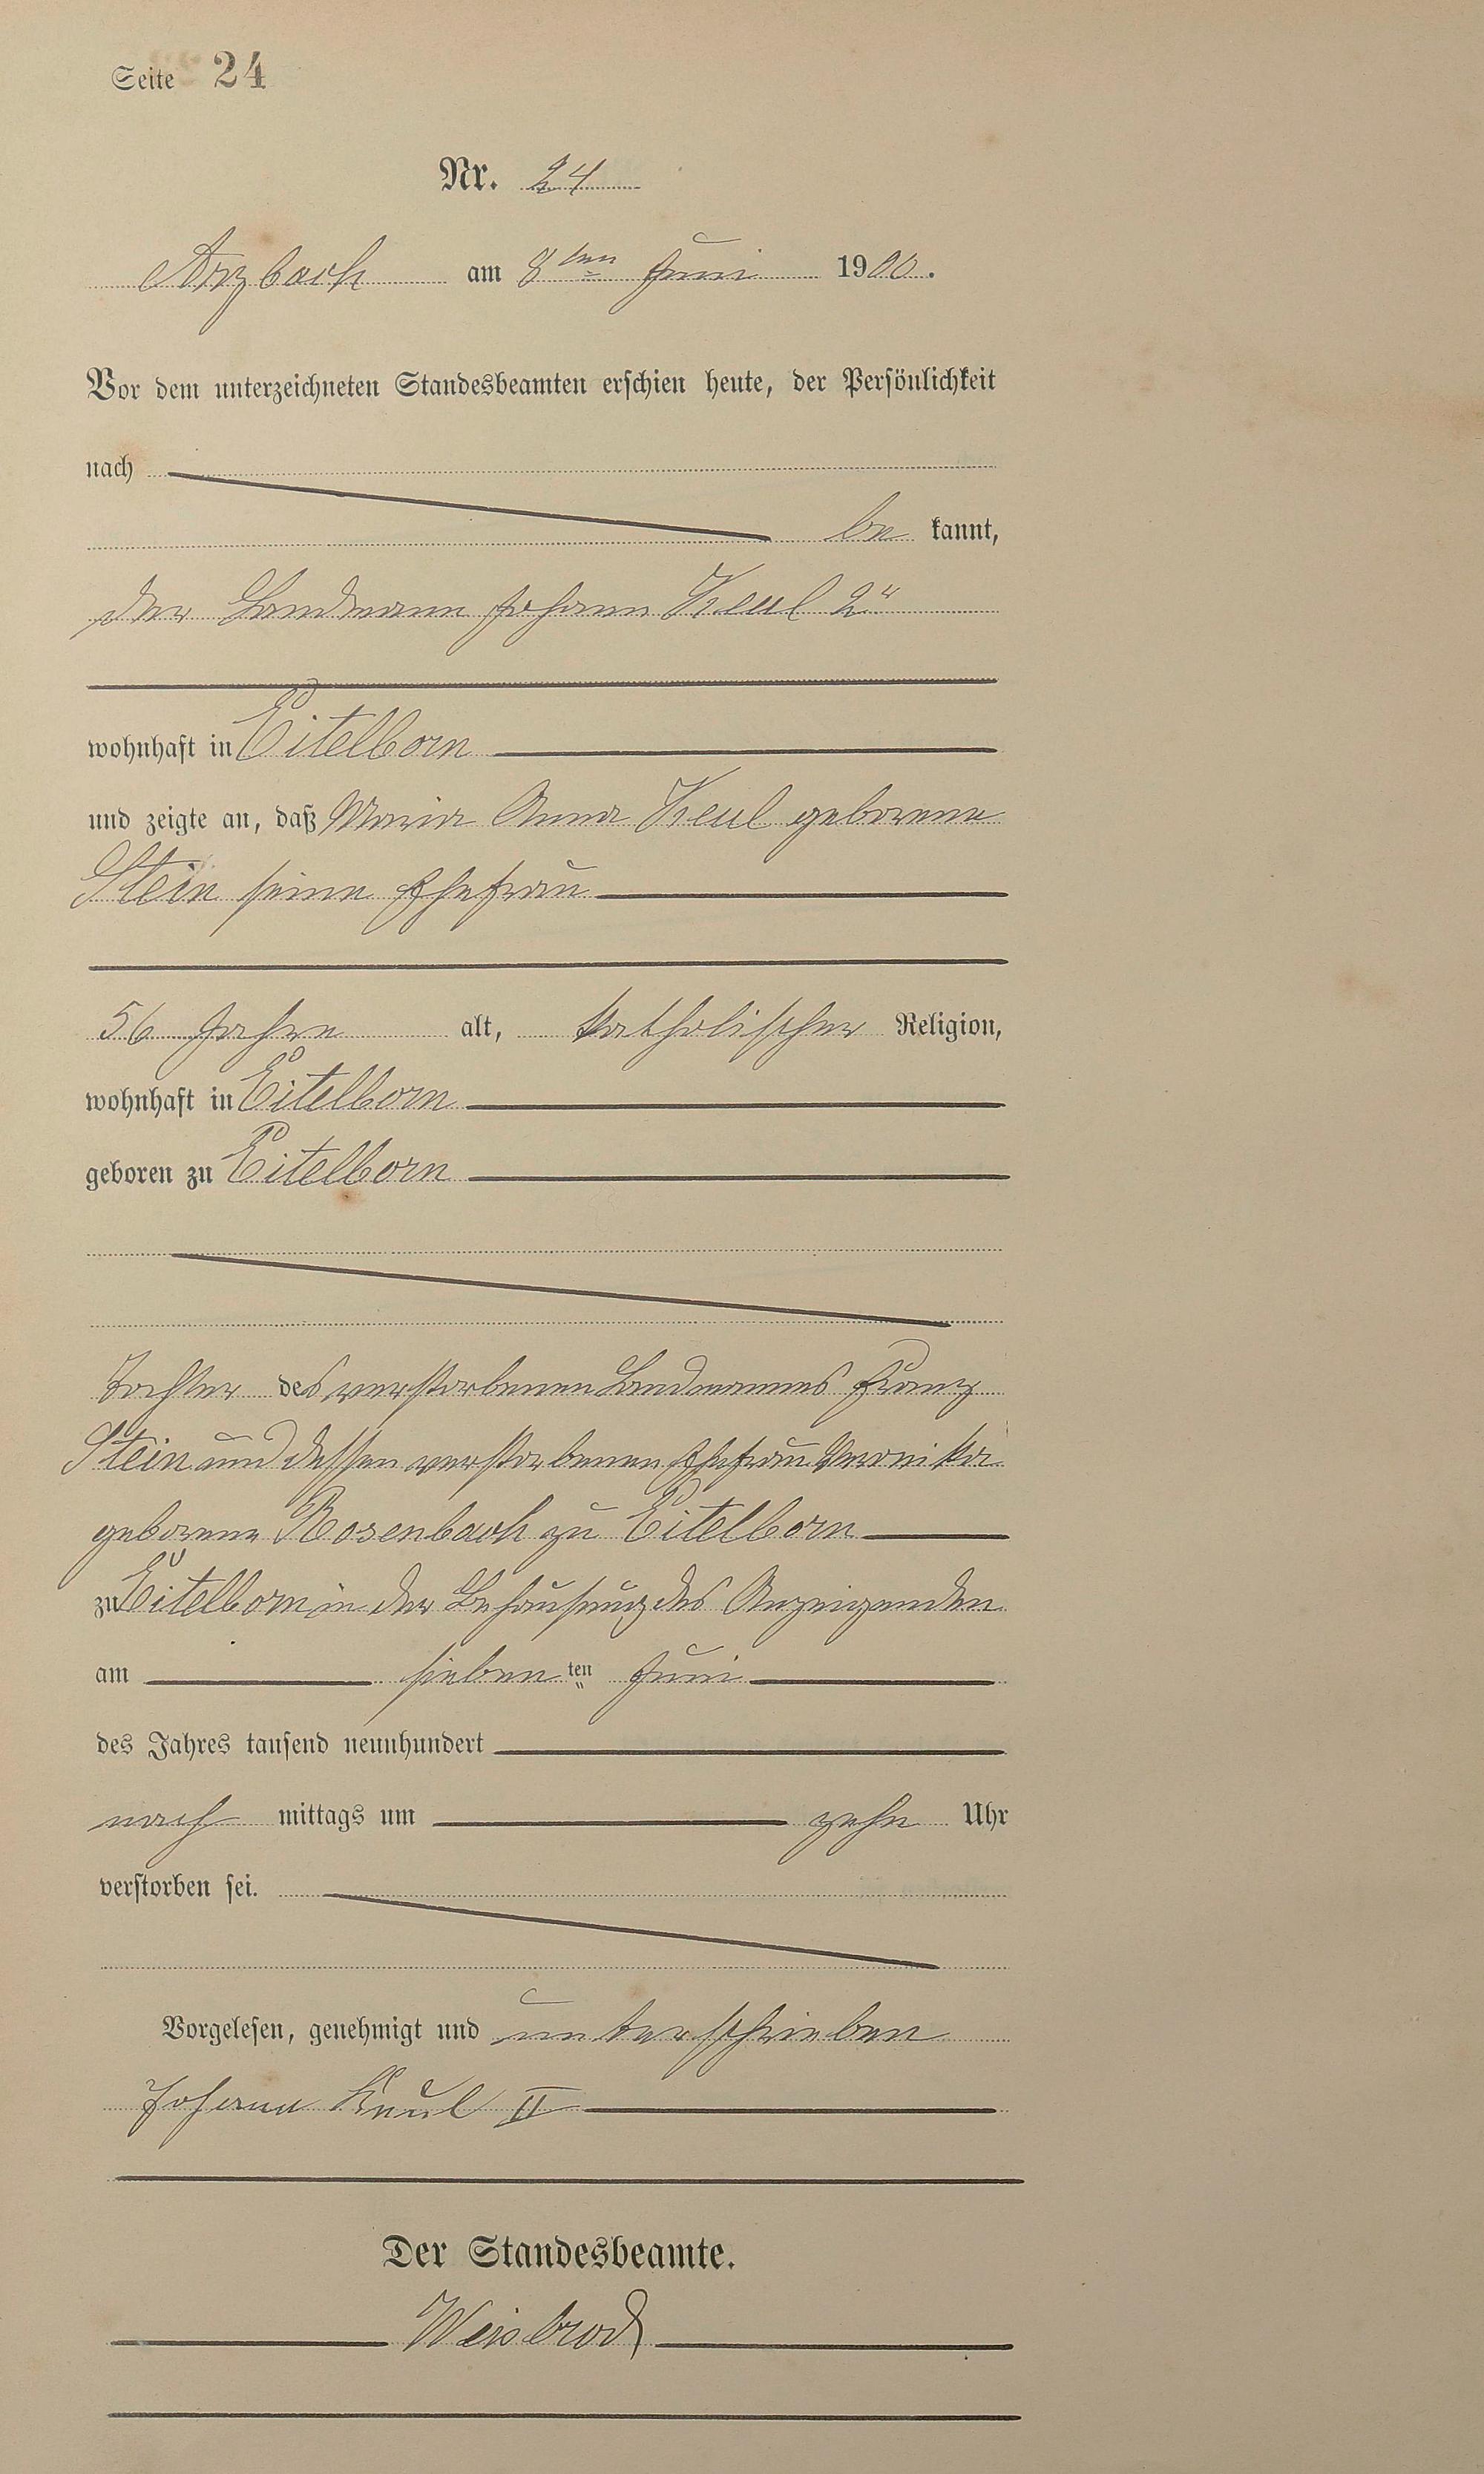 Seite 24
Nr. 24
Arzbach am 8ten Juni 1900.
Vor dem unterzeichneten Standesbeamten erschien heute, der Persönlichkeit
nach
be kannt,
der Landmann Johann Keul 2r
wohnhaft in Eitelborn
und zeigte an, daß Maria Anna Keul geborene
Stein seine Ehefrau
56 Jahre alt, katholischer Religion,
wohnhaft in Eitelborn
geboren zu Eitelborn
Tochter des verstorbenen Landmannes Franz
Stein und dessen verstorbenen Ehefrau Veronika
geborene Rosenbach zu Eitelborn
zu Eitelborn in der Behausung des Anzeigenden
am siebenten Juni
des Jahres tausend neunhundert
nach mittags um zehn Uhr
verstorben sei.
Vorgelesen, genehmigt und unterschrieben
Johann Keul II
Der Standesbeamte.
Weisbrod